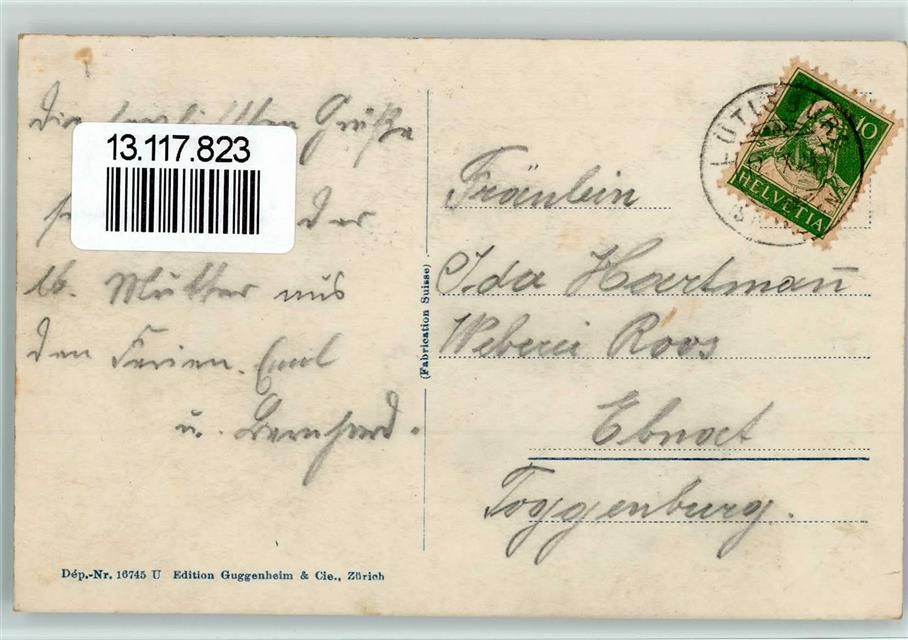 Die herzlichsten Grüße
13.117.823
der
lb. Mutter aus
den Ferien. Emil
u. Bernhard.
(Fabrication Suisse)
10
HELVETIA
Fräulein
Ida Hartmañ
Weberei Roos
Ebnat
Toggenburg.
Dép.-Nr. 16745 U Edition Guggenheim & Cie., Zürich